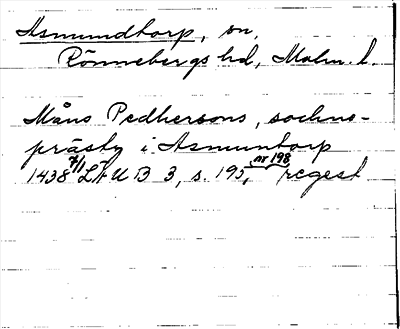 Asmundtorp, sn,
Rönnebergs hd, Malm. l.
Måns Pedhersons, sochno-
prästz i Asmuntorp
1438 7/1 LÄUB 3, s. 195, nr 198 regest